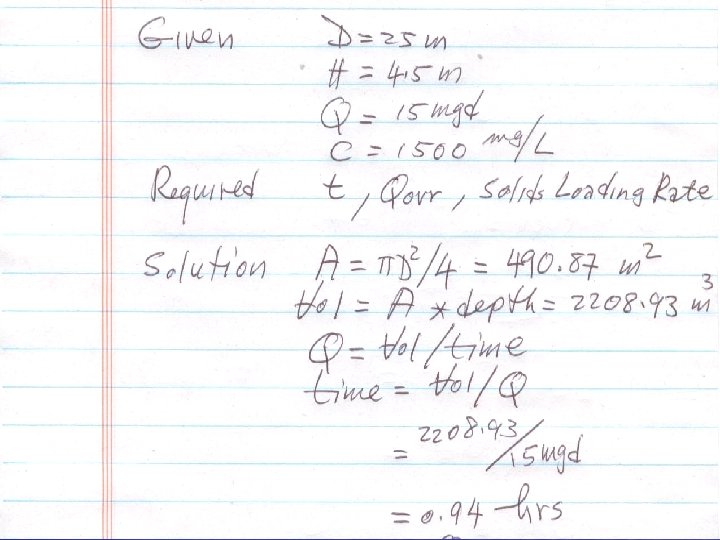 Given D = 25 m
H = 4.5 m
Q = 15 mgd
C = 1500 mg/L
Required t, Qovr, Solids Loading Rate
Solution A = πD²/4 = 490.87 m²
Vol = A * depth = 2208.93 m³
Q = Vol/time
time = Vol/Q
= 2208.93/15mgd
= 0.94 hrs